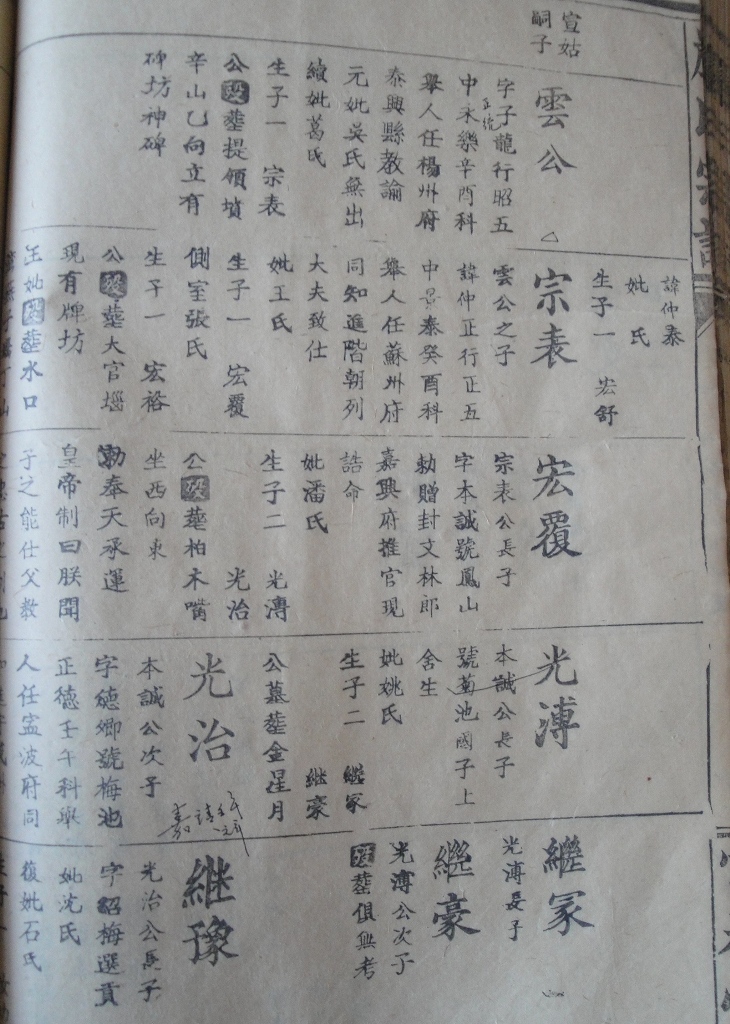 宣姑
嗣子
雲公
字子龍行昭五
正統
中永樂辛酉科
舉人任楊州府
泰興縣教諭
元妣吳氏無出
續妣葛氏
生子一 宗表
公歿葬提領墳
辛山乙向立有
碑坊神碑
諱仲泰
妣氏
生子一 宏舒
宗表
雲公之子
諱仲正行正五
中景泰癸酉科
舉人任蘇州府
同知進階朝列
大夫致仕
妣王氏
生子一 宏覆
側室張氏
生子一 宏裕
公歿葬大官堰
現有牌坊
王妣歿葬水口
宏覆
宗表公長子
字本誠號鳳山
勅贈封文林郎
嘉興府推官現
誥命
妣潘氏
生子二 光溥
光治
公歿葬柏木嘴
坐西向東
勅奉天承運
皇帝制曰朕聞
子之能仕父教
光溥
本誠公長子
號菊池國子上
舍生
妣姚氏
生子二 繼冢
继豪
公墓葬金星月
光治
本誠公次子
字德卿號梅池
正德壬午科舉
人任寧波府同
繼冢
光溥長子
繼豪
光溥公次子
歿葬俱無考
继豫
光治公長子
字紹梅選貢
妣沈氏
復妣石氏